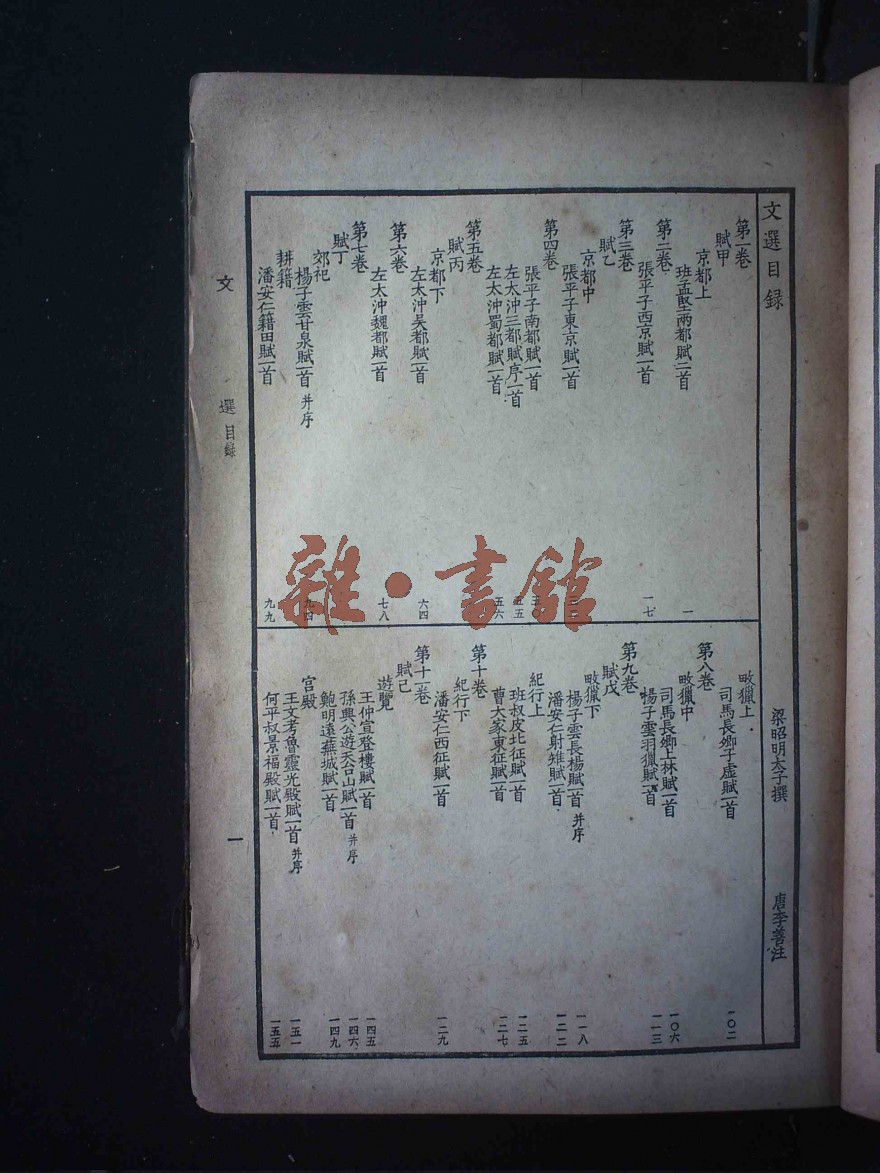 文選目錄
梁昭明太子撰
唐李善注
第一卷
賦甲
京都上
班孟堅兩都賦二首
一
第二卷
張平子西京賦一首
一七
第三卷
賦乙
京都中
張平子東京賦一首
第四卷
張平子南都賦一首
左太沖三都賦序一首
五五
左太沖蜀都賦一首
五六
第五卷
賦丙
京都下
左太沖吳都賦一首
六四
第六卷
左太沖魏都賦一首
七八
第七卷
賦丁
郊祀
楊子雲甘泉賦一首 并序
耕籍
潘安仁籍田賦一首
九九
畋獵上
司馬長卿子虛賦一首
一〇二
第八卷
畋獵中
司馬長卿上林賦一首
一〇六
楊子雲羽獵賦一首
一一三
第九卷
賦戊
畋獵下
楊子雲長楊賦一首 并序
一一八
潘安仁射雉賦一首
一二二
紀行上
班叔皮北征賦一首
一二五
曹大家東征賦一首
一二七
第十卷
紀行下
潘安仁西征賦一首
一二九
第十一卷
賦己
遊覽
王仲宣登樓賦一首
一四五
孫興公遊天台山賦一首 并序
一四六
鮑明遠蕪城賦一首
一四九
宮殿
王文考魯靈光殿賦一首 并序
一五一
何平叔景福殿賦一首
一五五
文選 目錄
一
雜·書館